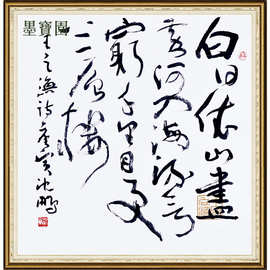 墨寶園
白日依山盡
黄河入海流欲
窮千里目更
上一层樓
王之渙詩庚寅沈鹏